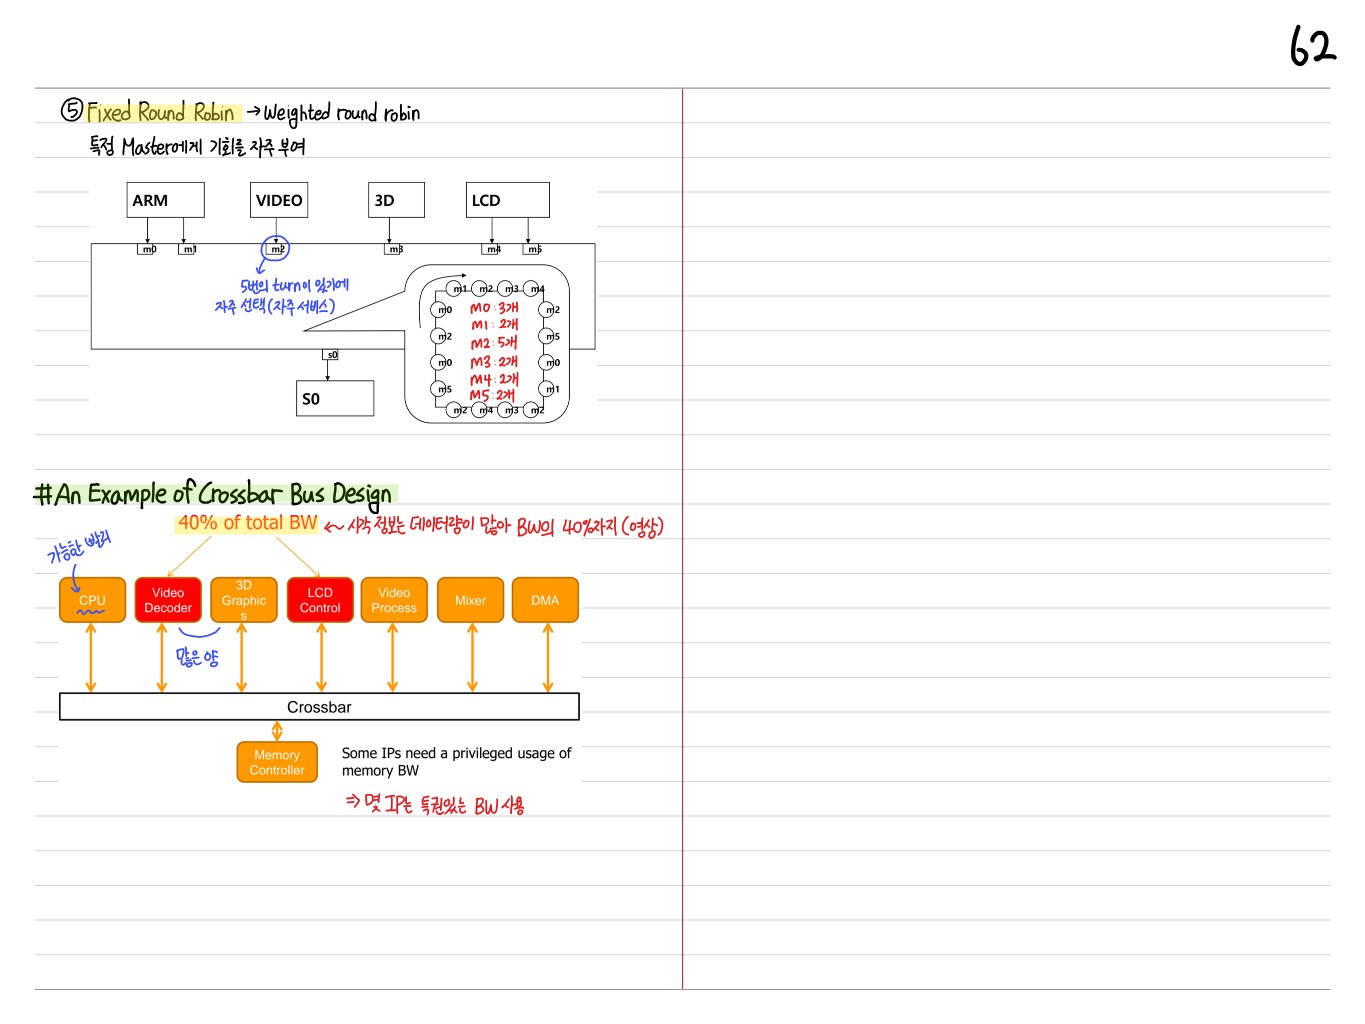 62
⑤ Fixed Round Robin → Weighted round robin
특정 Master에게 기회를 자주 부여
ARM VIDEO 3D LCD
m0 m1 m2 m3 m4 m5
5번의 turn이 있기에
자주 선택(자주 서비스)
m1 m2 m3 m4
m0 M0 : 3개 m2
M1 : 2개
m2 M2 : 5개 m5
m0 M3 : 2개 m0
M4 : 2개
m5 M5 : 2개 m1
m2 m4 m3 m2
s0
S0
#An Example of Crossbar Bus Design
40% of total BW ← 시각 정보는 데이터량이 많아 BW의 40%차지 (영상)
가능한 빨리
CPU
Video
Decoder
3D
Graphic
s
LCD
Control
Video
Process
Mixer
DMA
많은 양
Crossbar
Memory
Controller
Some IPs need a privileged usage of
memory BW
⇒ 몇 IP는 특권있는 BW 사용